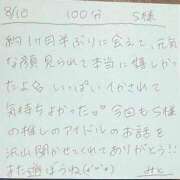 8/10 100分 S様
約1ヶ月半ぶりに会えて、元気
な顔見られて本当に嬉しかっ
たよ いっぱいイカされて
気持ちよかった 今回もS様
の推しのアイドルのお話を
沢山聞かせてくれてありがとう!!
また遊ぼうね(*^^*)
みと